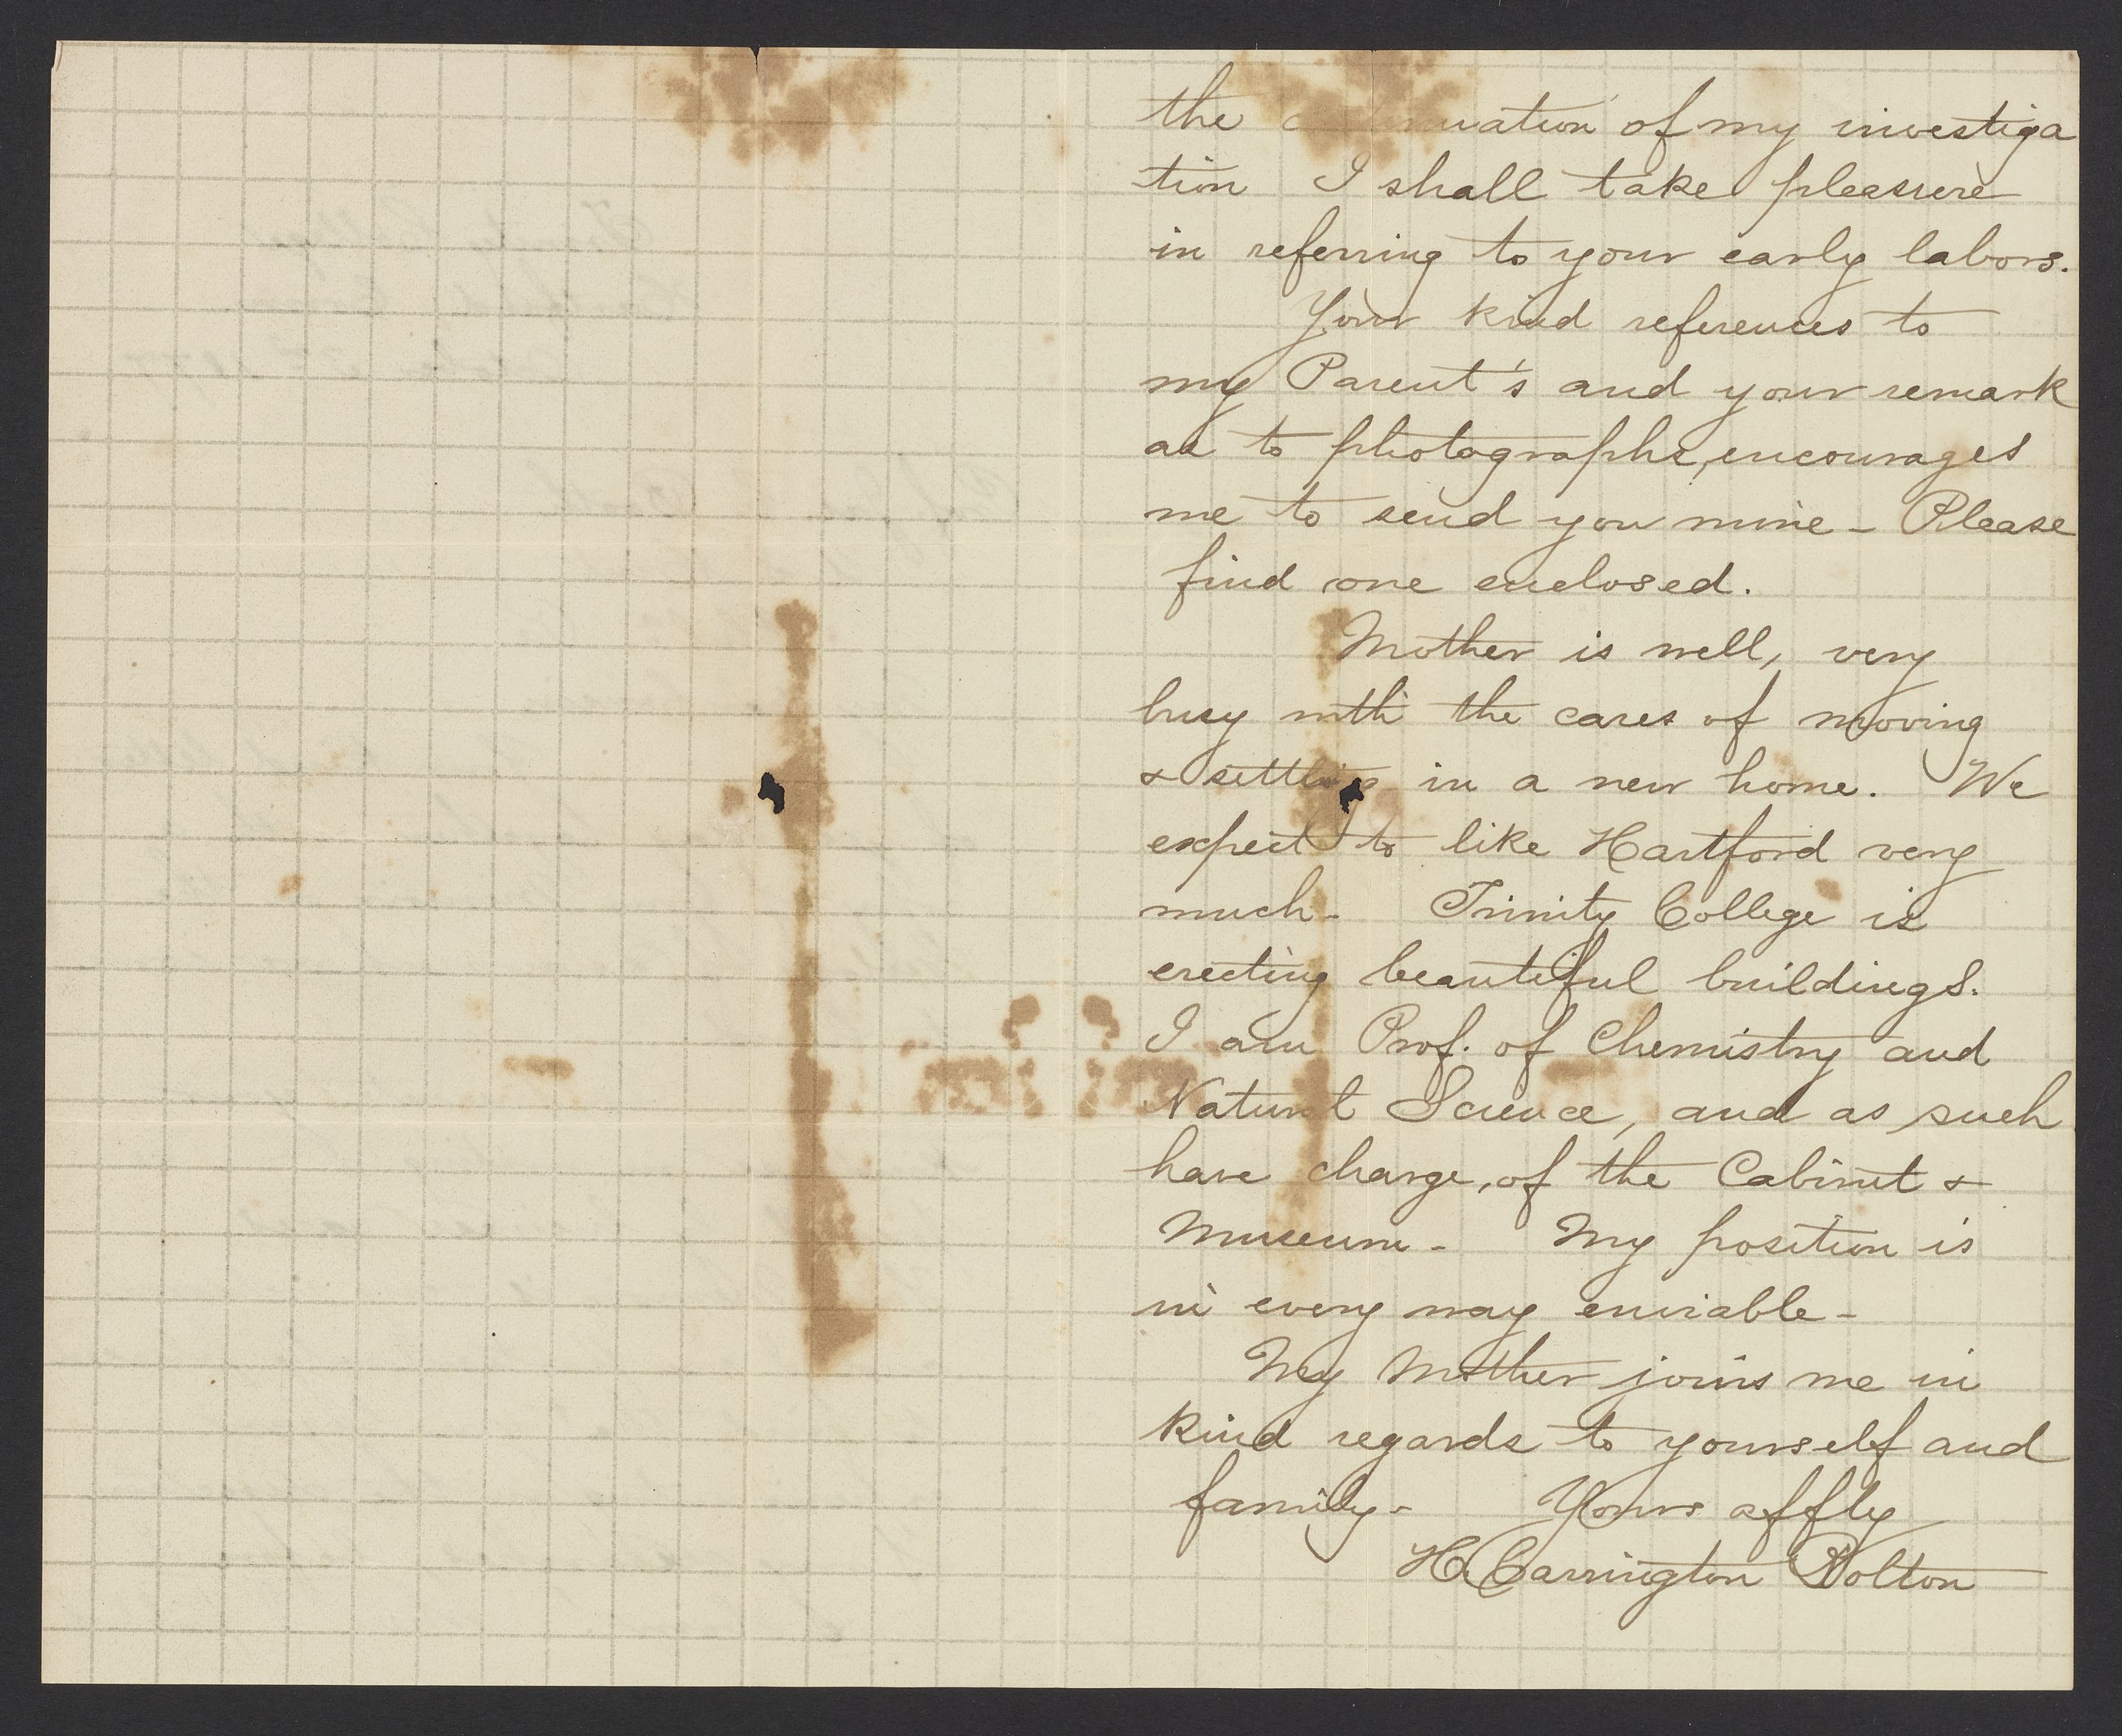 the of my investiga
tion I shall take pleasure
in referring to your early labors.
Your kind references to
my Parent's and your remark
as to photographs, encourages
me to send you mine - Please
find one enclosed.
Mother is well, very
busy with the cares of moving
& settling in a new home. We
expect to like Hartford very
much - Trinity College is
erecting beautiful buildings.
I am Prof. of Chemistry and
Natural Science, and as such
have charge, of the Cabinet &
Museum - My position is
in every way enviable -
My Mother joins me in
kind regards to yourself and
family - Yours affly
H. Carrington Bolton